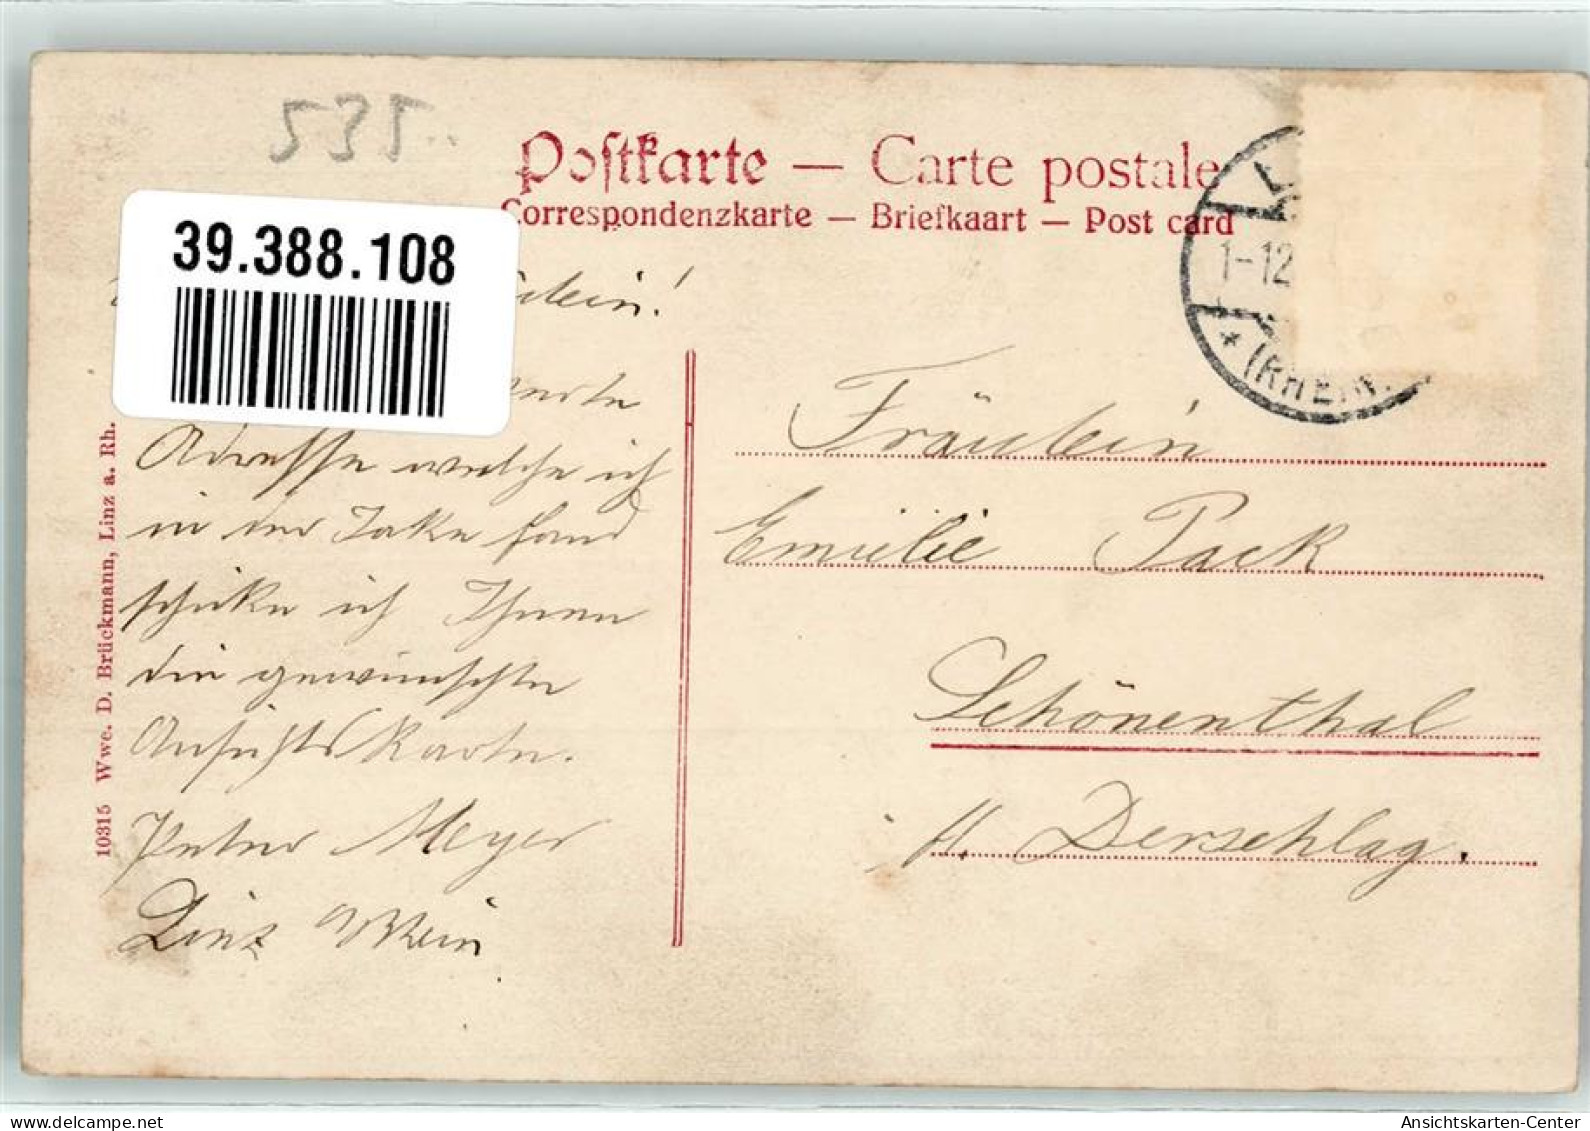 535
Postkarte — Carte postale
Correspondenzkarte — Briefkaart — Post card
39.388.108
1-12
* (RHEIN.
Adresse welche ich
in der Take fand
schicke ich Ihnen
die gewünschte
Ansichtskarte.
Peter Meyer
Linz a/Rhein
10315 Wwe. D. Brückmann, Linz a. Rh.
Fräulein
Emilie Pack
Schönenthal
Derschlag.
Ansichtskarten-Center